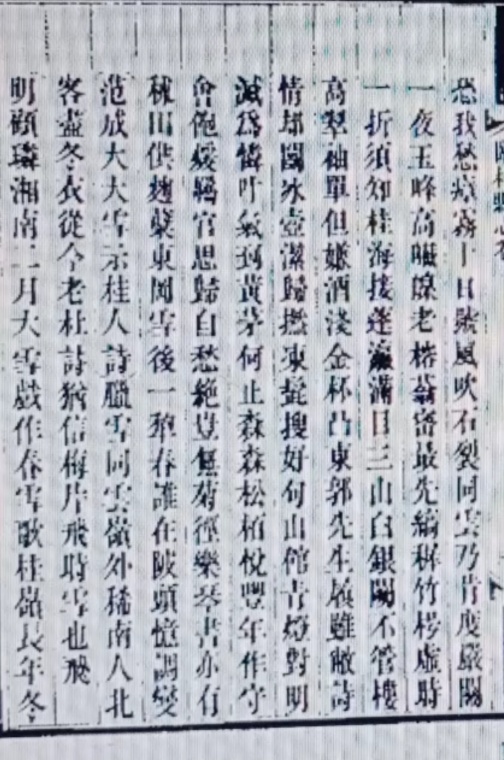 我愁瘴霧十日颷風吹石裂同雲乃肯度嚴關
一夜玉峰高巘老榕蓊密最先縞稊竹桵虛時
一折須知桂海接蓬瀛滿目三山白銀闕不管樓
高翠袖單但嫌酒淺金杯凸東郭先生履雖敝詩
情却與冰壺潔歸撚凍髭搜好句山館青燈對明
滅爲憐叶氣到黃茅何止森森松栢悅豐年作守
會俺緩羈官思歸自愁絶豈無菊徑樂琴書亦有
秫田供麴糵東岡雪後一犂春誰在陂頭憶調燮
范成大大雪示桂人詩臘雪同雲嶺外稀南人北
客盡冬衣從今老杜詩猶信梅片飛時雪也飛
明顧璘湘南二月大雪戲作春雪歌桂嶺長年冬